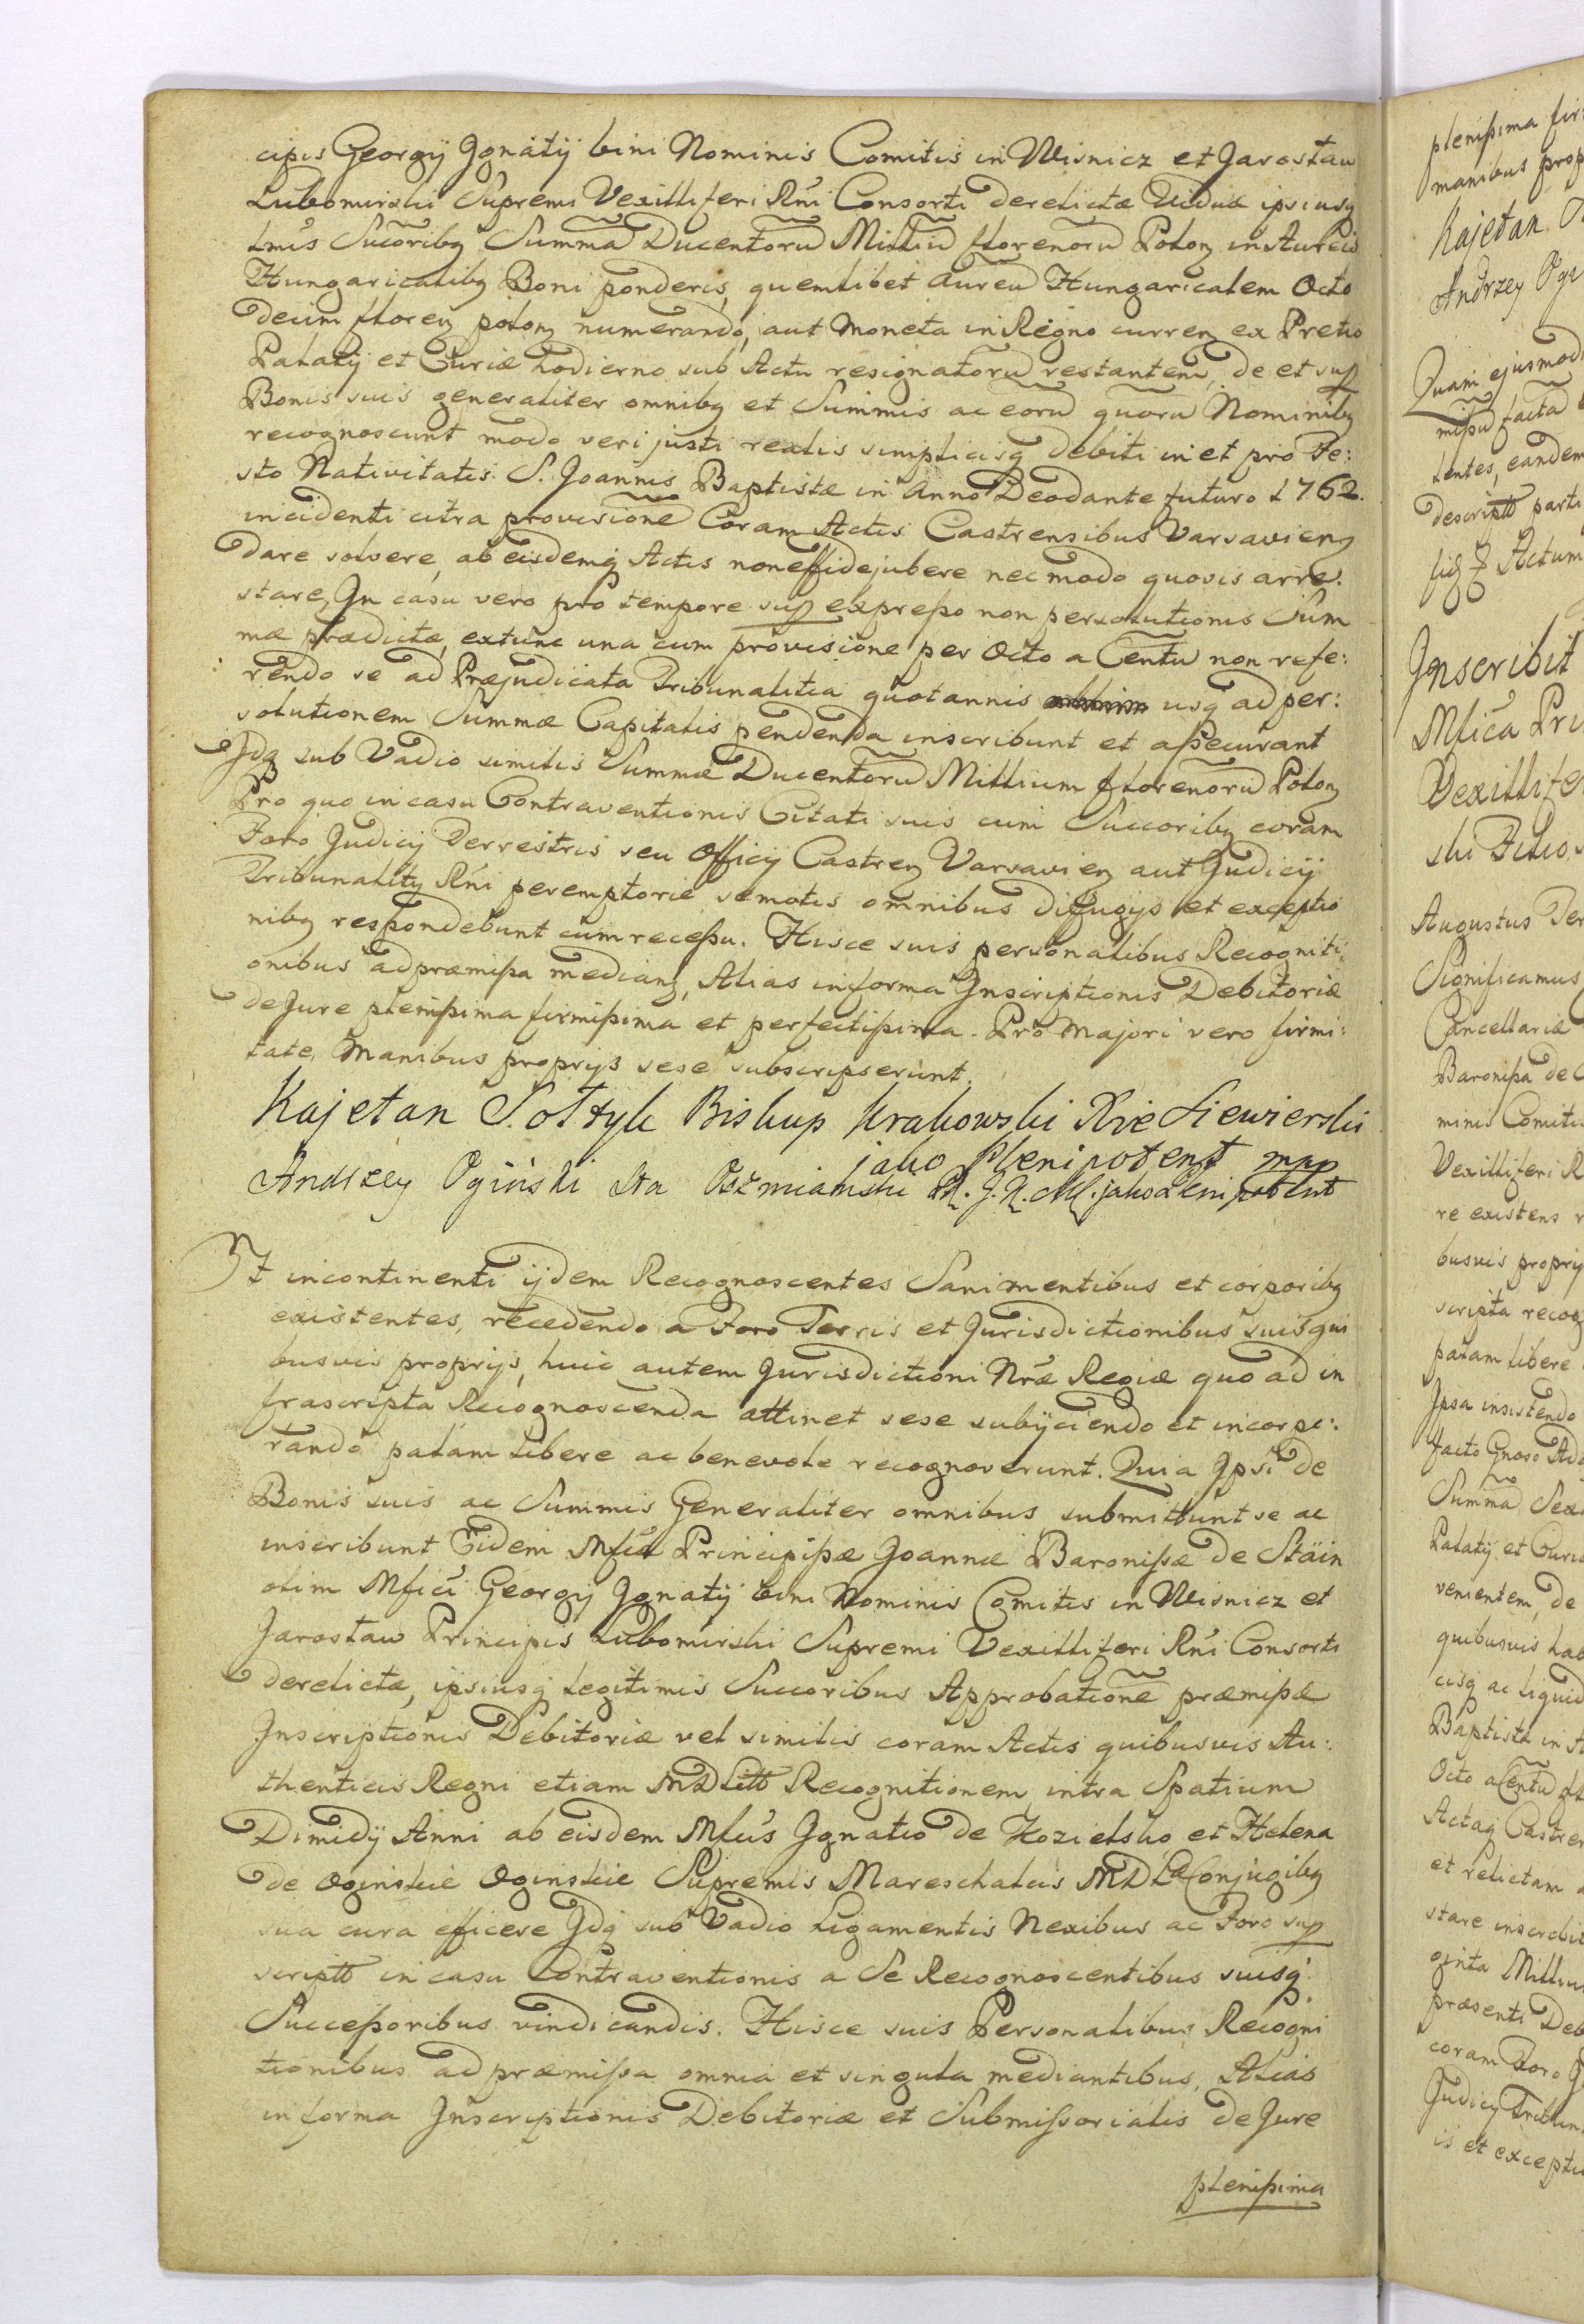 cipis Georgÿ Jgnatÿ bini Nominis Comitis in Wisnicz et Jarosław
Lubomirski Supremi Vexilliferi Rńi Consorti derelictæ Viduæ ipsiusq
Lmis Sucõribq Summã Ducentorũ Milliũ florenorũ Polonq in Aureis
Hungaricalibq Boni ponderis, quemlibet Aureũ Hungaricalem Octo
decim florenq polonq numerando, aut Moneta in Regno currenq ex Pretio
Palatÿ et Curiæ hodierno sub Actu resignatorũ restantem, de et sup
Bonis suis generaliter omnibq et Summis ac eorũ quorũ Nominibq
recognoscunt modo veri justi realis simplicisq debiti in et pro Fe:
sto Nativitatis S. Joannis Baptistæ in Anno Deodante futuro 1762.
incidenti citra provisionẽ Coram Actis Castrensibus Varsavienq
dare solvere, ab eisdemq Actis non effidejubere nec modo quovis arre:
stare, Jn casu vero pro tempore sup expresso non persolutionis Sum
mæ prædictæ, extunc una cum provisione per Octo a Centũ non refe:
rendo se ad Præjudicata Tribunalitia quotannis usq ad per:
solutionem Summæ Capitalis pendenda inscribunt et assecurant
Jdq sub Vadio similis Summæ Ducentorũ Millium florenorũ Polonq
Pro quo in casu Contraventionis Citati suis cum Succoribq coram
Foro Judicÿ Terrestris seu Officÿ Castrenq Varsavienq aut Judicÿ
Tribunalitÿ Rńi peremptorie semotis omnibus diffugÿs et exceptio
nibq respondebunt cum recessu. Hisce suis personalibus Recogniti:
onibus ad præmissa mediantq, Alias in forma Jnscriptionis Debitoriæ
de Jure plenissima firmissima et perfectissima. Pro Majori vero firmi:
tate, Manibus proprÿs sese subscripserunt.
Kajetan Sołtyk Biskup Krakowski Xże Siewierski
jako Plenipotent mpp
Andrzey Ogiński Sta Oszmianski P. J. K. Ml. jako Plenipotent
Et incontinenti ijdem Recognoscentes Sani mentibus et corporibq
existentes, recedendo a Foro Terris et Jurisdictionibus suis qui
busvis proprijs, huic autem Jurisdictioni Nræ Regiæ quo ad in
frascripta Recognoscenda attinet sese subÿciendo et incorpo:
rando palam libere ac benevole recognoverunt. Quia Jpsi de
Bonis suis ac Summis Generaliter omnibus submittunt se ac
inscribunt Eidem Mficæ Principissæ Joannæ Baronissæ de Stäin
olim Mfici Georgÿ Jgnatÿ bini Nominis Comitis in Wisnicz et
Jarosław Principis Lubomirski Supremi Vexilliferi Rńi Consorti
derelictæ, ipsiusq Legitimis Succoribus Approbationẽ præmissæ
Jnscriptionis Debitoriæ vel similis coram Actis quibusvis Au:
thenticis Regni etiam MDLitt Recognitionem intra Spatium
Dimidÿ Anni ab eisdem Mfcis Jgnatio de Kozielsko et Helena
de Oginskie Oginskie Supremis Mareschalcis MDL Conjugibq
sua cura efficere Jdq sub Vadio Ligamentis Nexibus ac Foro sup
scriptt in casu Contraventionis a Se Recognoscentibus suisq
Successoribus vindicandis. Hisce suis Personalibus Recogni
tionibus ad præmissa omnia et singula mediantibus, Alias
in forma Jnscriptionis Debitoriæ et Submissorialis de Jure
plenissima
plenissima fir
manibus prop
Kajetan
Andrzey Ogi
Quam ejusmodi
missũ facta
tentes, eandem
descriptt parti
Actum
Jnscribit
Mfica Pri
Vexillife
ski Filio
Augustus Ter
Significamus
Cancellariæ
Baronissa de
minis Comitis
Vexilliferi R
re existens
busvis proprij
scripta recog
palam libere
Jpsa insistendo
facto Gnoso Ad
Summã Sexa
Palatÿ et Curiæ
venientem, de
quibusvis hab
cisq ac liquid
Baptistæ in A
Octo a Centũ
Actaq Castren
et relictam
stare inscribit
ginta Milliu
præsenti Deb
coram Foro
Judicÿ Tribun
is et exceptio